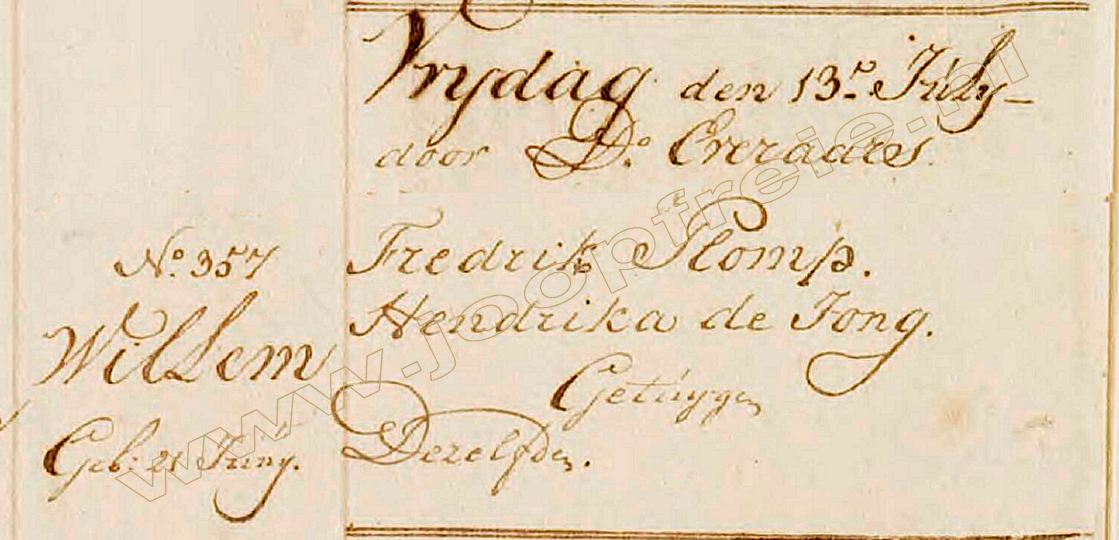 Vrydag den 13.e July
door D.o Everardes
N.o 357
Willem
Geb: 21 Juny.
Fredrik Slomp.
Hendrika de Jong.
Getuygen
Dezelfden.
www.joopfreie.nl